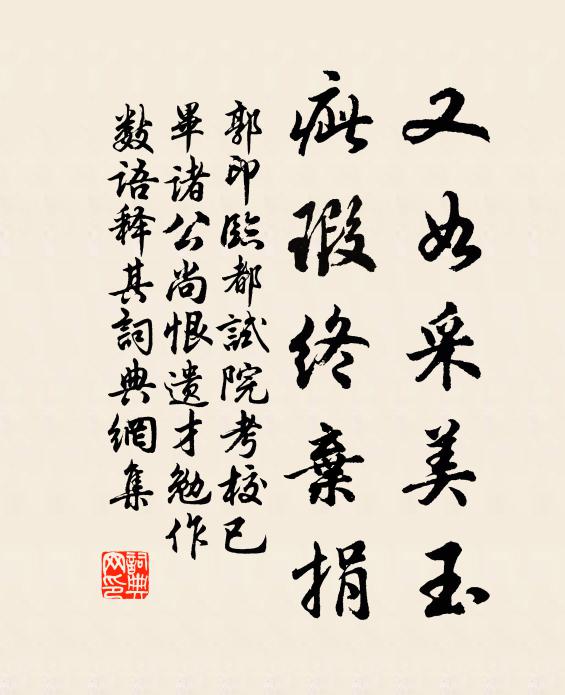 又如采美玉
疵瑕终棄捐
郭印臨都試院考校已
畢諸公尚恨遺才勉作
数語释其詞典網集
詞典
网印